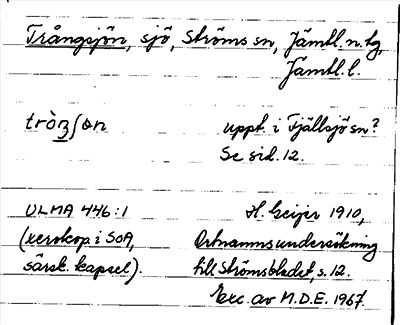 Trångsjön, sjö, Ströms sn, Jämtl. n. tg,
Jämtl. l.
tròʒʃɷn uppt. i Fjällsjö sn?
Se sid. 12.
ULMA 446:1 H. Geijer 1910,
(xerokop. i SOA, Ortnamnsundersökning
särsk. kapsel). till Strömsbladet, s. 12.
Exc. av M.D.E. 1967.